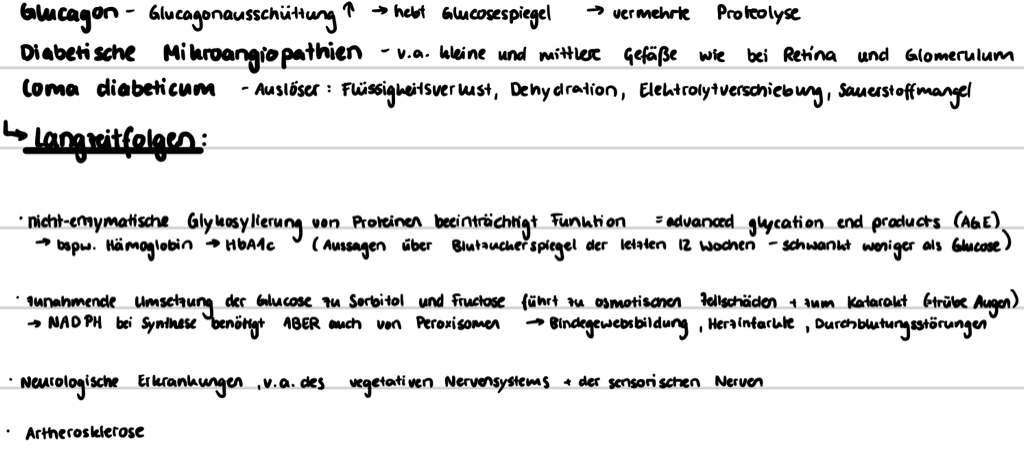 Glucagon - Glucagonausschüttung ↑ → hebt Glucosespiegel → vermehrte Proteolyse
Diabetische Mikroangiopathien - v.a. kleine und mittlere Gefäße wie bei Retina und Glomerulum
Coma diabeticum - Auslöser: Flüssigkeitsverlust, Dehydration, Elektrolytverschiebung, Sauerstoffmangel
↳ Langzeitfolgen:
· nicht-enzymatische Glykosylierung von Proteinen beeinträchtigt Funktion = advanced glycation end products (AGE)
→ bspw. Hämoglobin → HbA1c (Aussagen über Blutzuckerspiegel der letzten 12 Wochen - schwankt weniger als Glucose)
· zunahmende Umsetzung der Glucose zu Sorbitol und Fructose führt zu osmotischen Zellschäden + zum Katarakt (trübe Augen)
→ NADPH bei Synthese benötigt ABER auch von Peroxisomen → Bindegewebsbildung, Herzinfarkte, Durchblutungsstörungen
· Neurologische Erkrankungen, v.a. des vegetativen Nervensystems + der sensorischen Nerven
· Artherosklerose